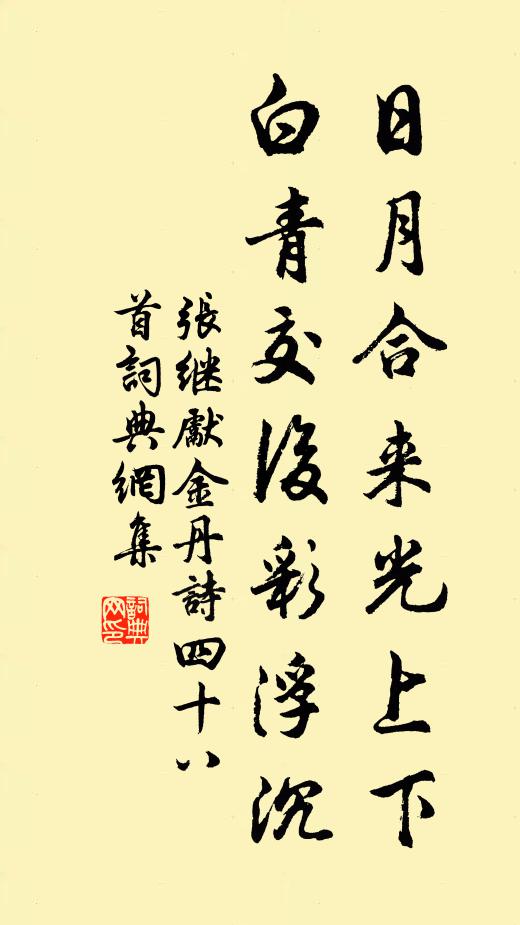 日月合来光上下
白青交後彩浮沉
張継獻金丹詩四十八
首詞典網集
詞典
网印